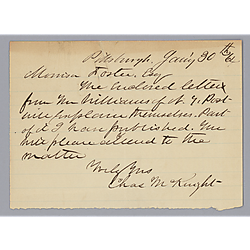 Pittsburgh, Jany 30th /62
Morrison Foster, Esq
The enclosed letters
from Mr Williams of N. Y. Post
will explain themselves. Part
of it I have published. You
will please attend to the
matter
Yrs
Chas McKnight